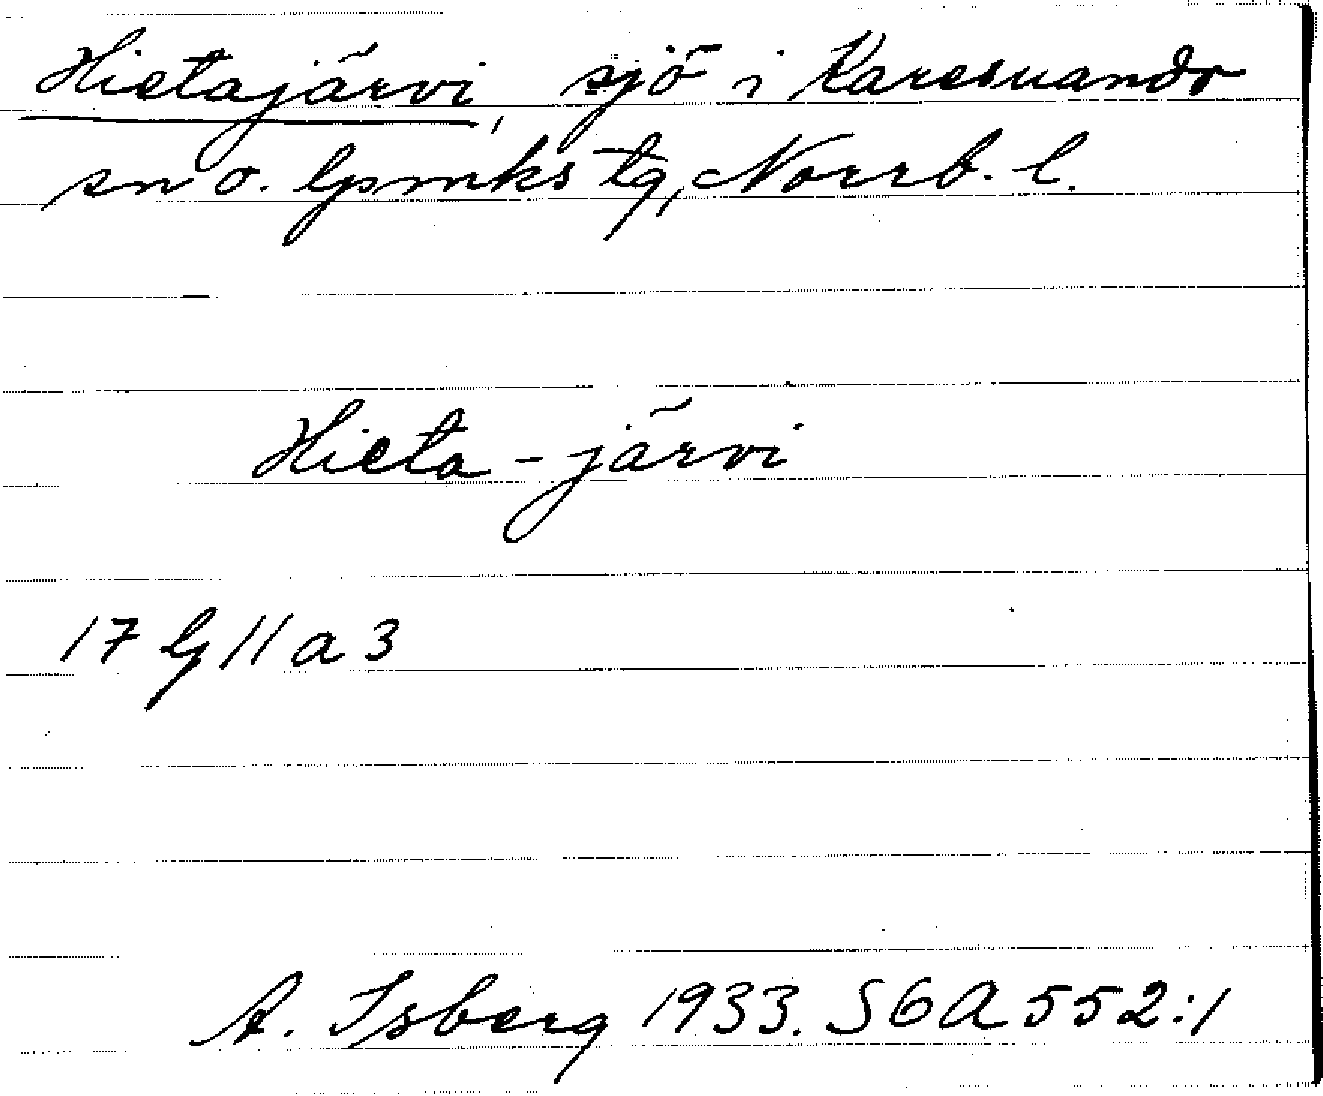 Hietajärvi, sjö i Karesuando
sn o. lpmks tg, Norrb. l.
Hieta-järvi
17 G 11 a 3
A. Isberg 1933. SGA 552:1